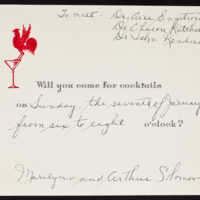 To meet: Dr. Arne Engström
Dr. Ephraim Katchalski
Dr. John Kendrew
Will you come for cocktails
on Sunday, the seventh of January
from six to eight o'clock?
Marilynn and Arthur Solomon